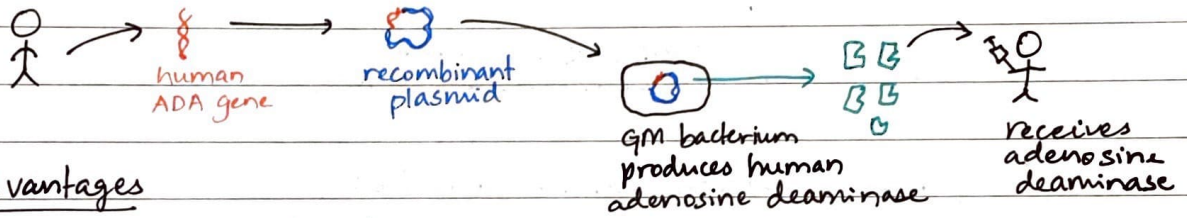 human
ADA gene
recombinant
plasmid
GM bacterium
produces human
adenosine deaminase
receives
adenosine
deaminase
vantages